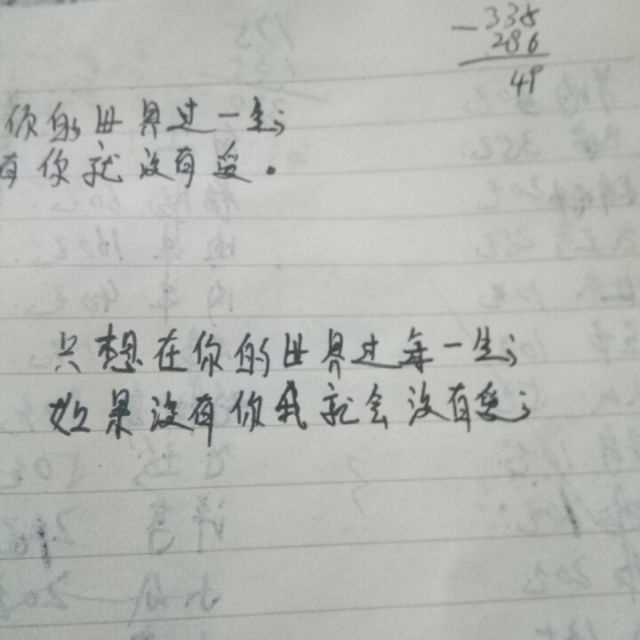 -338
286
49
你的世界过一生;
有你就没有爱.
只想在你的世界过每一生;
如果没有你我就会没有爱;